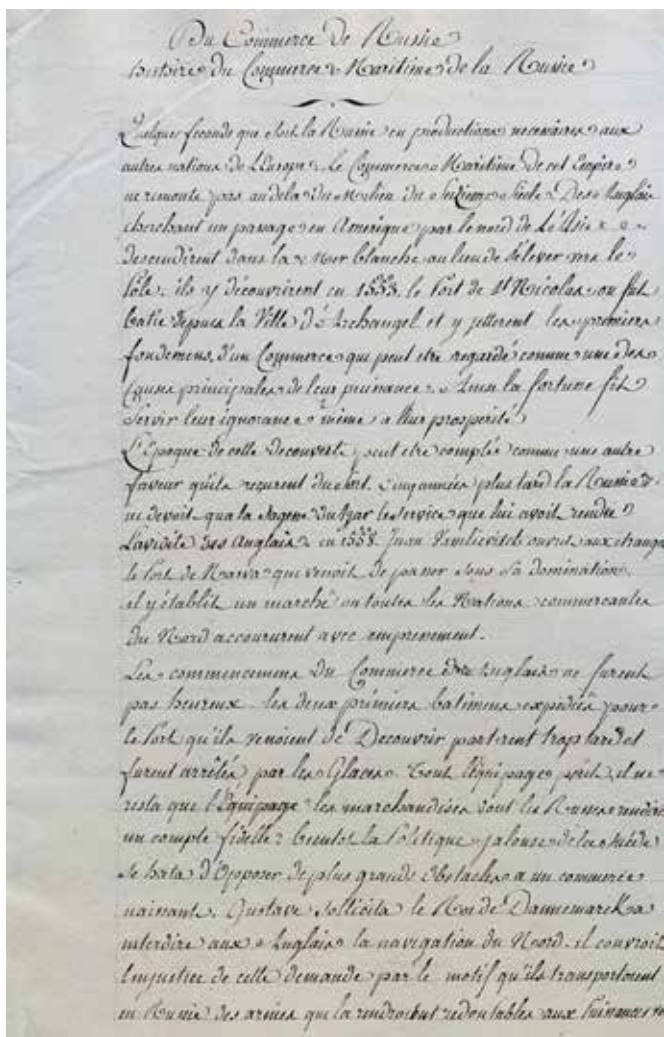 Du Commerce de Russie
histoire du Commerce Maritime de la Russie
Quelque féconde que étoit la Russie en productions necessaires aux
autres nations de L'Europe, le Commerce Maritime de cet Empire
ne remonte pas au dela du Milieu du Seizieme Siecle. Des Anglais
cherchant un passage en Amerique par le nord de L'Asie
descendirent dans la Mer blanche au lieu de s'élever vers le
Pôle. ils y découvrirent en 1553. le Port de St Nicolas ou fut
batie depuis la Ville d'Archangel et y jetterent les premiers
fondemens, d'un Commerce qui peut etre regardé comme une des
causes principales de leur puissance. Ainsi la fortune fit
Servir leur ignorance même a leur prosperité
L'Epoque de cette decouverte peut etre comptée comme une autre
faveur qu'ils reçurent du sort. Cinq années plus tard la Russie
ne devoit qu'a la Sagesse du tzar le service que lui avoit rendu
L'avidité des Anglais en 1558. Juan Vasilievitch ouvrit aux etrangers
le Port de Narva qui venoit de passer sous sa domination
il y établit un marché ou toutes les Nations commercantes
du Nord accoururent avec empressement.
Les commencemens du Commerce des Anglais ne furent
pas heureux. les deux premiers batimens expediés pour
le Port qu'ils venoient de Decouvrir partirent trop tard et
furent arrêtés par les Glaces. Tout l'équipage périt, il ne
resta que l'Equipage les marchandises dont les Russes rendirent
un compte fidelle: bientot la Politique jalouse de la Suède
Se hata d'Opposer de plus grands Obstacles a un commerce
naissant. Gustave sollicita le Roi de Dannemarck a
interdire aux Anglais la navigation du Nord. il couvroit
l'injustice de cette demande par le motif qu'ils transportoient
en Russie des armes qui la rendroient redoutables aux Puissances